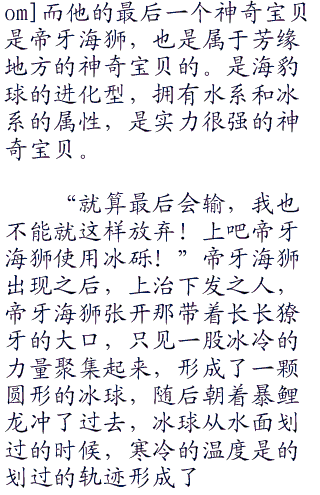 om]而他的最后一个神奇宝贝
是帝牙海狮，也是属于芳缘
地方的神奇宝贝的。是海豹
球的进化型，拥有水系和冰
系的属性，是实力很强的神
奇宝贝。
“就算最后会输，我也
不能就这样放弃！上吧帝牙
海狮使用冰砾！”帝牙海狮
出现之后，上治下发之人，
帝牙海狮张开那带着长长獠
牙的大口，只见一股冰冷的
力量聚集起来，形成了一颗
圆形的冰球，随后朝着暴鲤
龙冲了过去，冰球从水面划
过的时候，寒冷的温度是的
划过的轨迹形成了